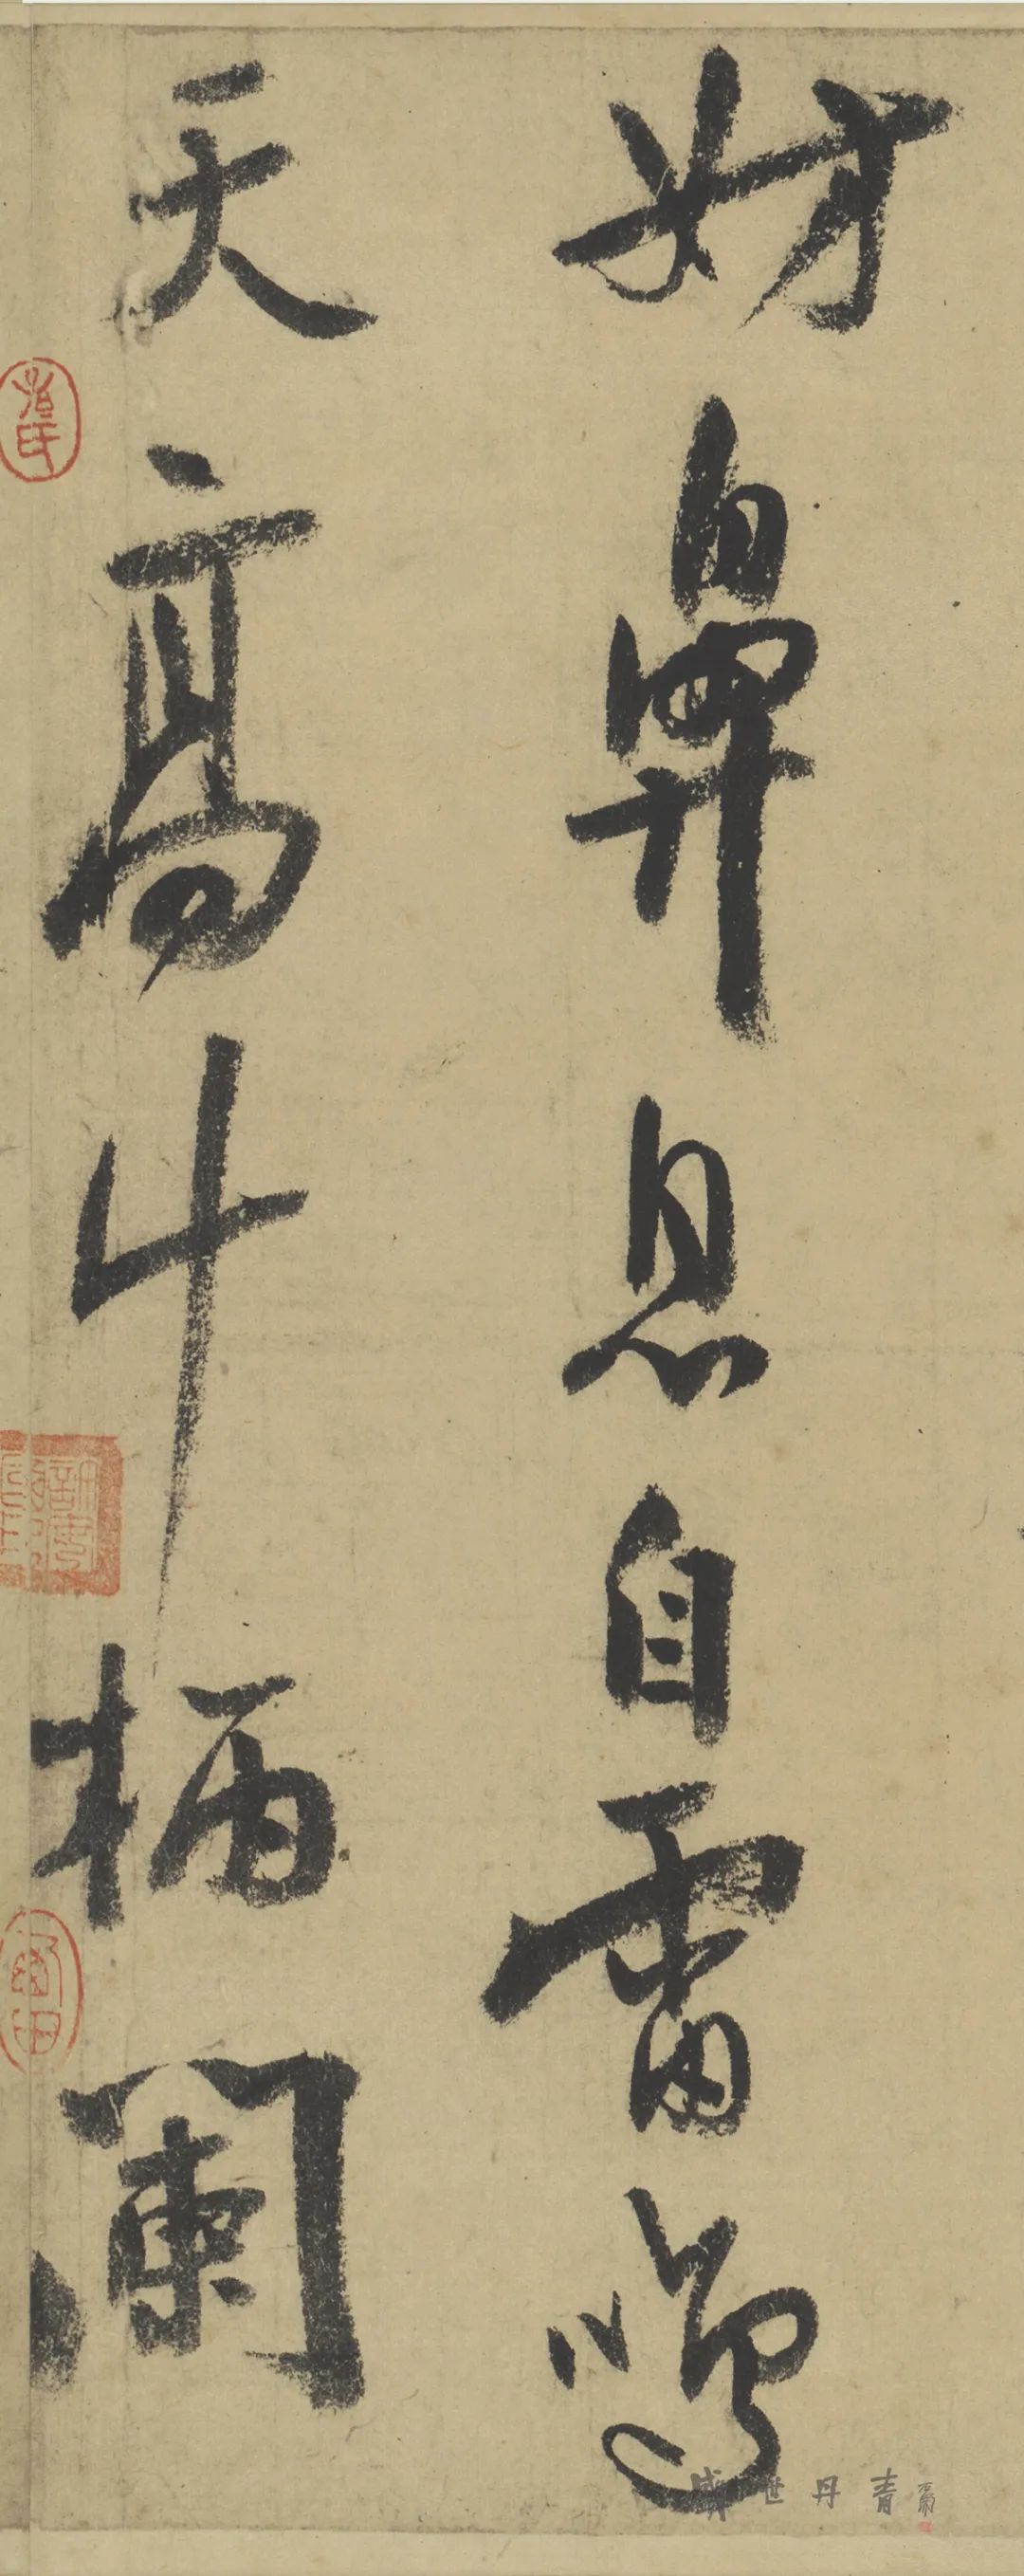 妨鼻息自雷鳴
天高斗柄闌
盛世丹青